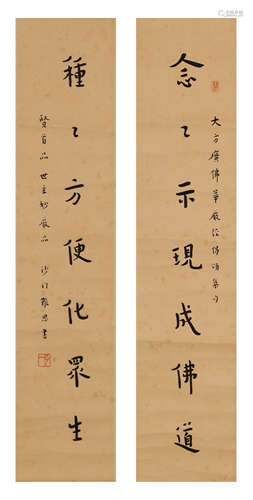 大方廣佛華嚴經偈頌集句
念〻示現成佛道
種〻方便化眾生
賢首品 世主妙嚴品 沙門
書